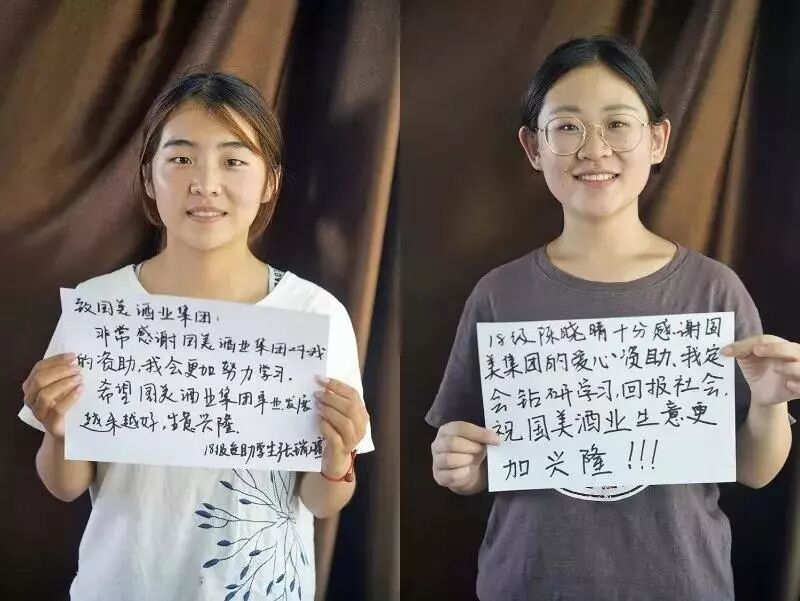 致国美酒业集团：
非常感谢国美酒业集团对我
的资助、我会更加努力学习．
希望国美酒业集团事业发展
越来越好，生意兴隆．
18级受助学生张瑞
18级陈晓晴十分感谢国
美集团的爱心资助、我定
会钻研学习，回报社会，
祝国美酒业生意更
加兴隆！！！